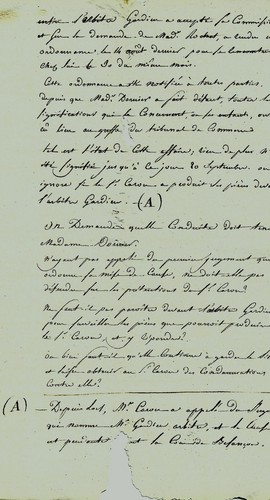 l'arbitre Gardien a accepté sa Commission
et sur la demande de Mad.e a rendu
ordonnance le 14 aout dernier pour se rencontrer
chez lui le 30 du même mois.
Cette ordonnance a été notifiée à toutes parties.
depuis que Mad.e Dornier a fait défaut, toutes les
significations qui la Concernent, ou ses enfants, ont
eu lieu au greffe du tribunal de Commerce
tel est l'état de cette affaire, rien de plus n'a
été signifié jusqu'à ce jour 20 Septembre. on
ignore si le Sr. Cerou a produit ses pièces devant
l'arbitre Gardien. (A)
On Demande quelle Conduite doit tenir
Madame Dornier.
N'ayant pas appelé du premier jugement qui
ordonne la mise de Cause, ne doit elle pas
défendre sur les prétentions du Sr. Cerou?
Ne faut-il pas paroître devant l'arbitre
pour les pièces que pourroit produire
le Sr. Cerou et y répondre?
ou bien faut-il qu'elle Continue à garder le
et laisse obtenir au Sr. Cerou des Condamnations
Contre elle?
(A) — Depuis lors, Mr. Cerou a appelé du Juge
qui nomme Mr. Gardien arbitre, et la Cause
est pendante la Cour de Besançon.